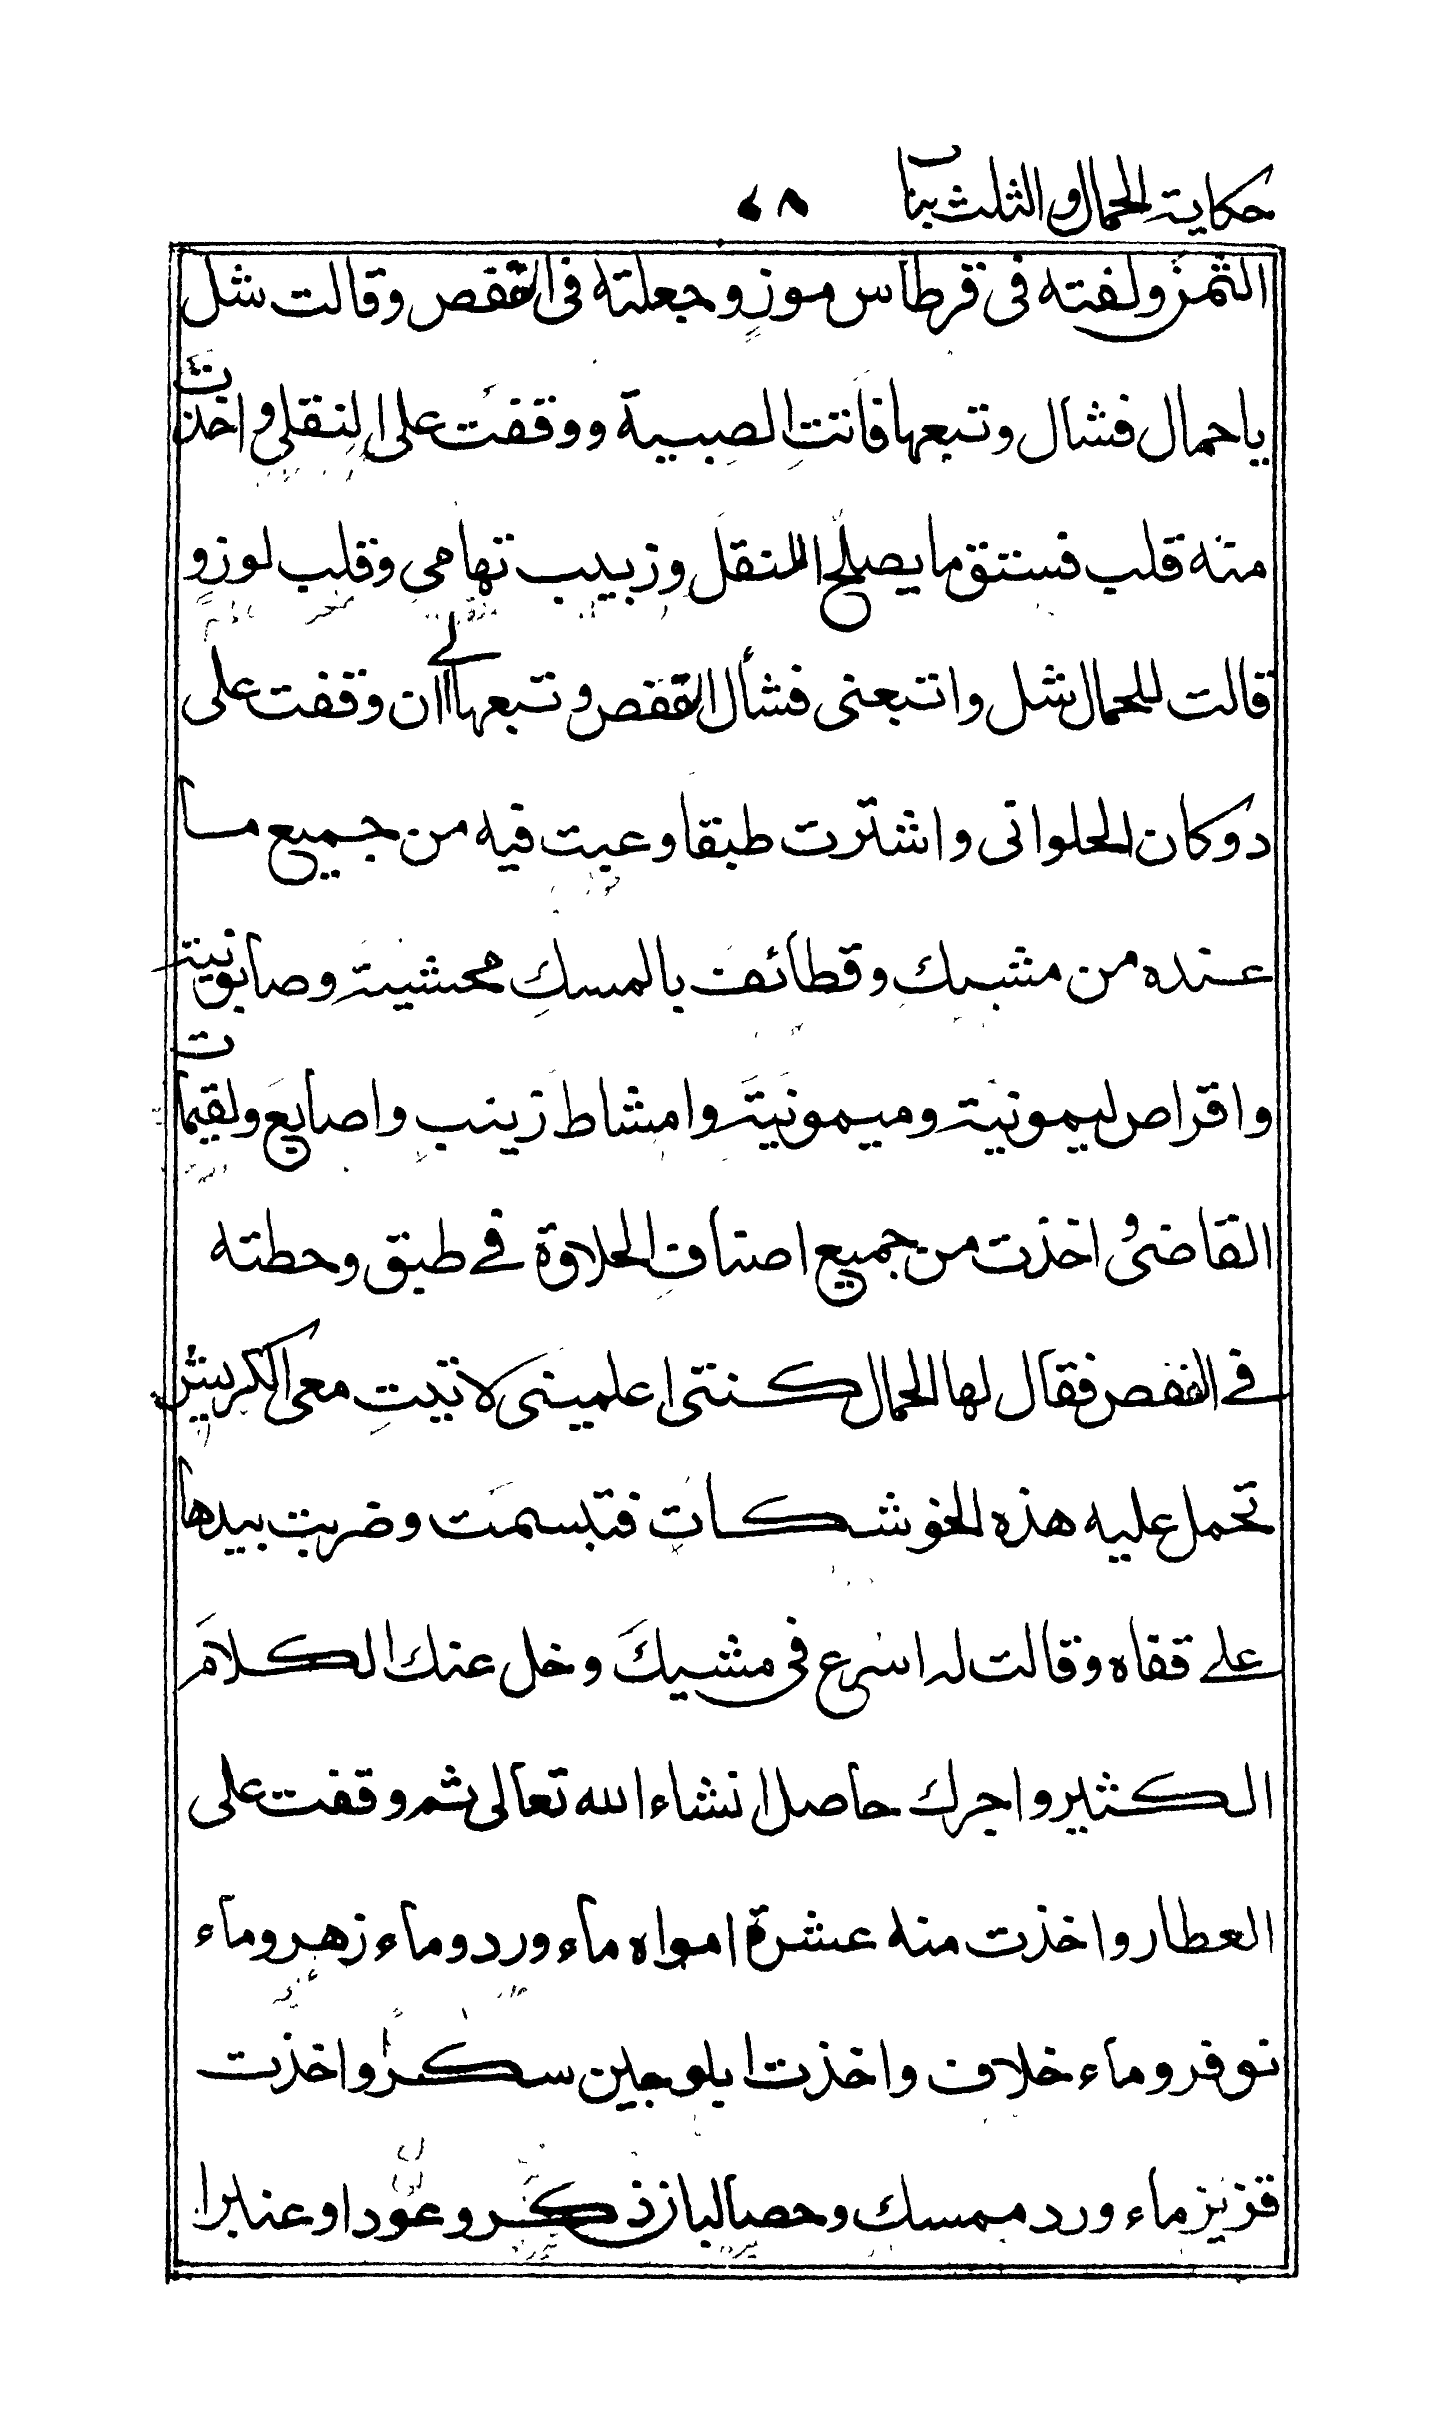 حكاية الحمال والثلث بنات ٦٨
الثمن ولفته فى قرطاس موز وجعلته فى القفص وقالت شل
ياحمال فشال وتبعها فانت الصبية ووقفت على النقلى واخذت
منه قلب فستق ما يصلح للنقل وزبيب تهامى وقلب لوز و
قالت للحمال شل واتبعنى فشأل القفص وتبعها الى ان وقفت على
دوكان الحلوانى واشترت طبقا وعبت فيه من جميع ما
عنده من مشبك وقطائف بالمسك محشية وصابونية
واقراص ليمونية وميمونية وامشاط زينب واصابع ولقيمات
القاضى واخذت من جميع اصناف الحلاوة فے طبق وحطته
فے القفص فقال لها الحمال كنتى اعلمينى لا تيت معى الكريش
تحمل عليه هذه الخوشكات فتبسمت وضربت بيدها
علے قفاه وقالت له اسرع فى مشيك وخل عنك الكلام
الكثير واجرك حاصل انشاء الله تعالى ثم وقفت على
العطار واخذت منه عشرة امواه ماء ورد وماء زهر وماء
نوفر وماء خلاف واخذت ابلوجين سكر واخذت
قزيز ماء ورد ممسك وحصالبان ذكر وعودا وعنبرا